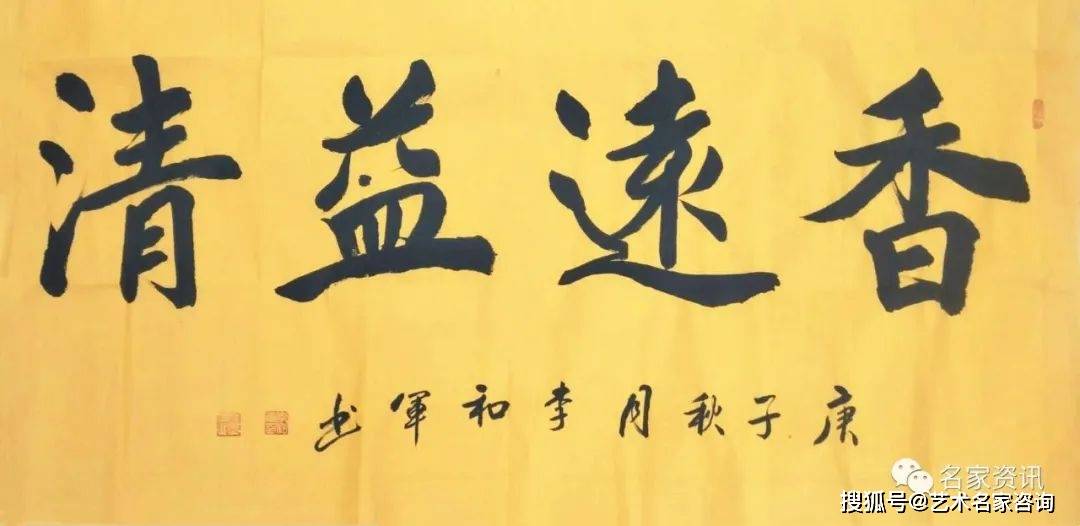 香遠益清
庚子秋月李和軍书
名家资讯
搜狐号@艺术名家咨询